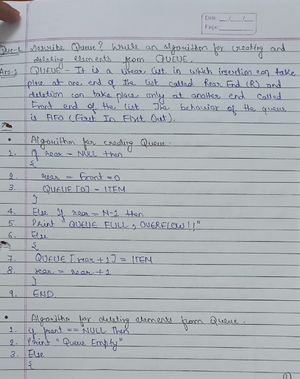 Date: / /
Page:
Ques-1 Describe Queue? Write an algorithm for creating and
deleting elements from QUEUE.
Ans-1 QUEUE - It is a linear list in which insertion can take
place at one end of the list called Rear End (R) and
deletion can take place only at another end called
Front end of the list. The behavior of the queue
is FIFO (First In First Out).
• Algorithm for creating Queue.
1. If rear = NULL then
{
2. rear = front = 0
3. QUEUE [0] = ITEM
}
4. Else If rear = N-1 then
5. Print "QUEUE FULL, OVERFLOW!!"
6. Else
{
7. QUEUE [rear + 1] = ITEM
8. rear = rear + 1
}
9. END.
• Algorithm for deleting elements from Queue.
1. if front == NULL Then
2. Print "Queue Empty"
3. Else
{